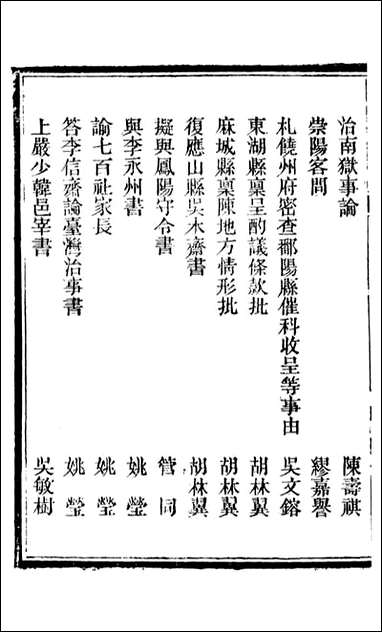 治南獄事論　陳壽祺
崇陽客問　繆嘉譽
札饒州府密查鄱陽縣催科收呈等事由　吳文鎔
東湖縣稟呈酌議條款批　胡林翼
麻城縣稟陳地方情形批　胡林翼
復應山縣吳木齋書　胡林翼
擬與鳳陽守令書　管同
與李永州書　姚瑩
諭七百社家長　姚瑩
答李信齋論臺灣治事書　姚瑩
上嚴少韓邑宰書　吳敏樹